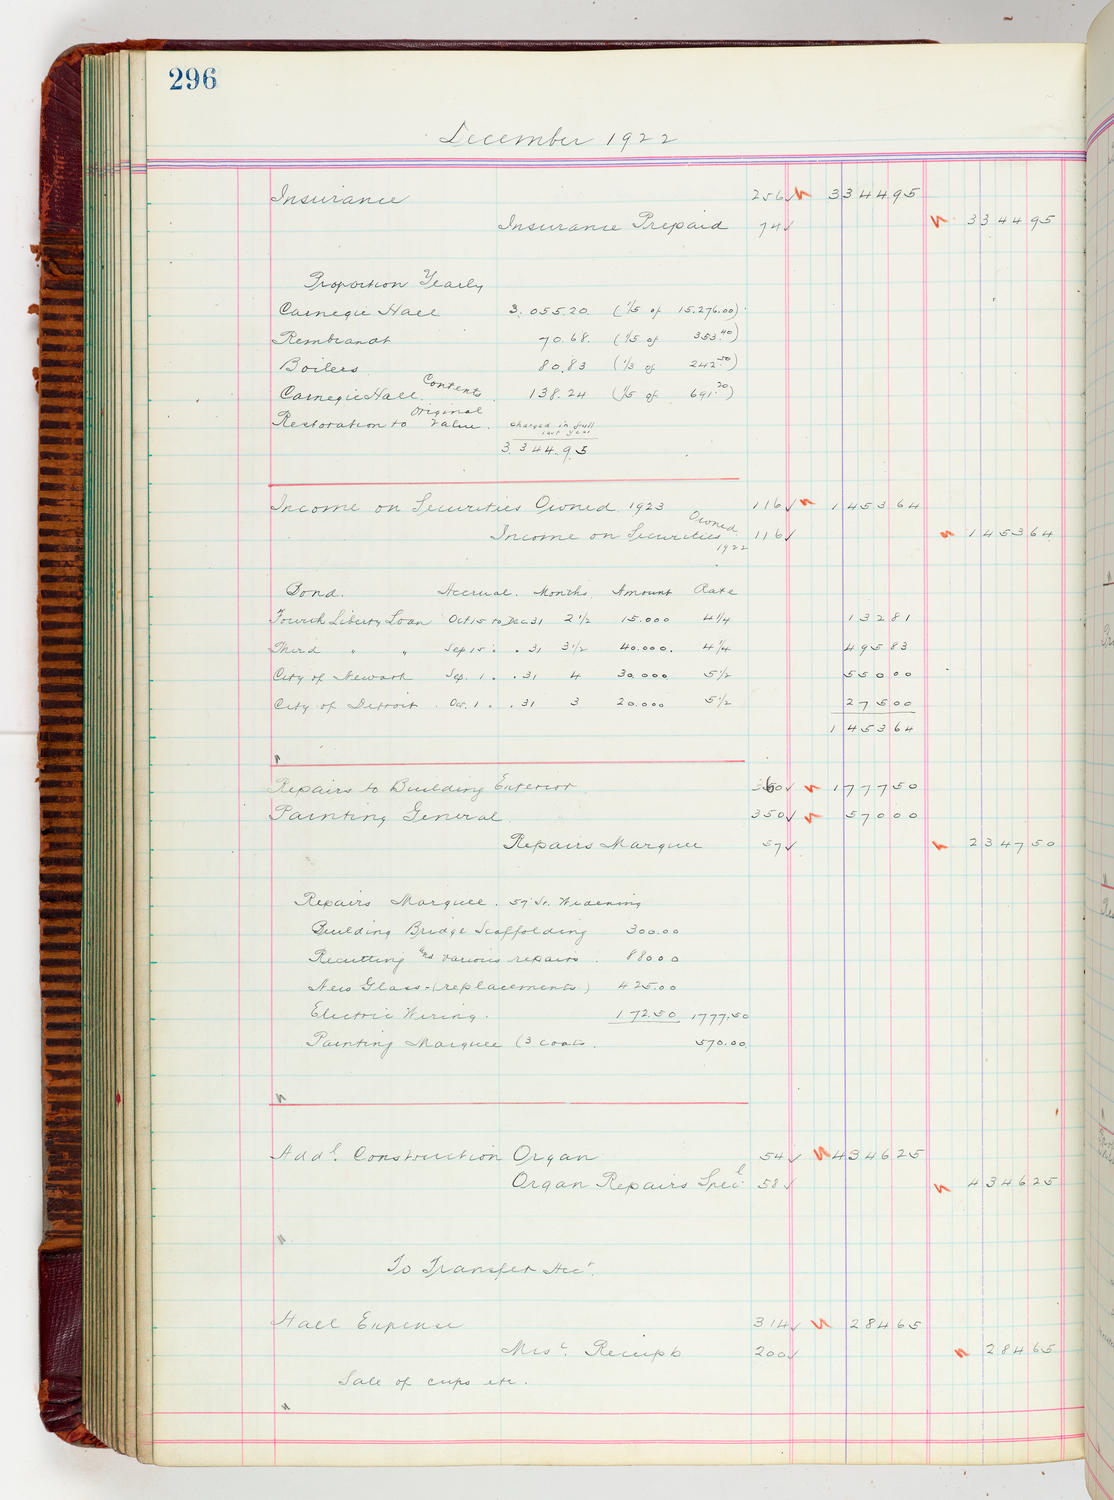 296
December 1922
Insurance 256 334495
Insurance Prepaid 74 334495
Proportion Yearly
Carnegie Hall 3.055.20. (1/5 of 15.276.00)
Rembrandt 70.68. (1/5 of 353.40)
Boilers 80.83 (1/3 of 242.50)
Carnegie Hall Contents 138.24 (1/5 of 691.20)
Restoration to Original Value. charged in full last year
3.344.95
Income on Securities Owned 1923 116 145364
Income on Securities Owned 1922 116 145364
Bond. Accrual. Months. Amount Rate
Fourth Liberty Loan Oct 15 to Dec 31 2 1/2 15.000 4 1/4 13281
Third " " Sep 15 " . 31 3 1/2 40.000. 4 1/4 49583
City of Newark Sep. 1 . . 31 4 30.000 5 1/2 55000
City of Detroit. Oct. 1 . . 31 3 20.000 5 1/2 27500
145364
Repairs to Building Exterior 360 177750
Painting General. 350 57000
Repairs Marquee 57 234750
Repairs Marquee. 57 St. Widening
Building Bridge Scaffolding 300.00
Recutting and various repairs. 880 00
New Glass - (replacements) 425.00
Electric Wiring. 172.50 1777.50
Painting Marquee (3 coats. 570.00
Addl. Construction Organ 54 434625
Organ Repairs Specl. 58 434625
To Transfer Acct.
Hall Expense 314 28465
Misc. Receipts 200 28465
Sale of cups etc.